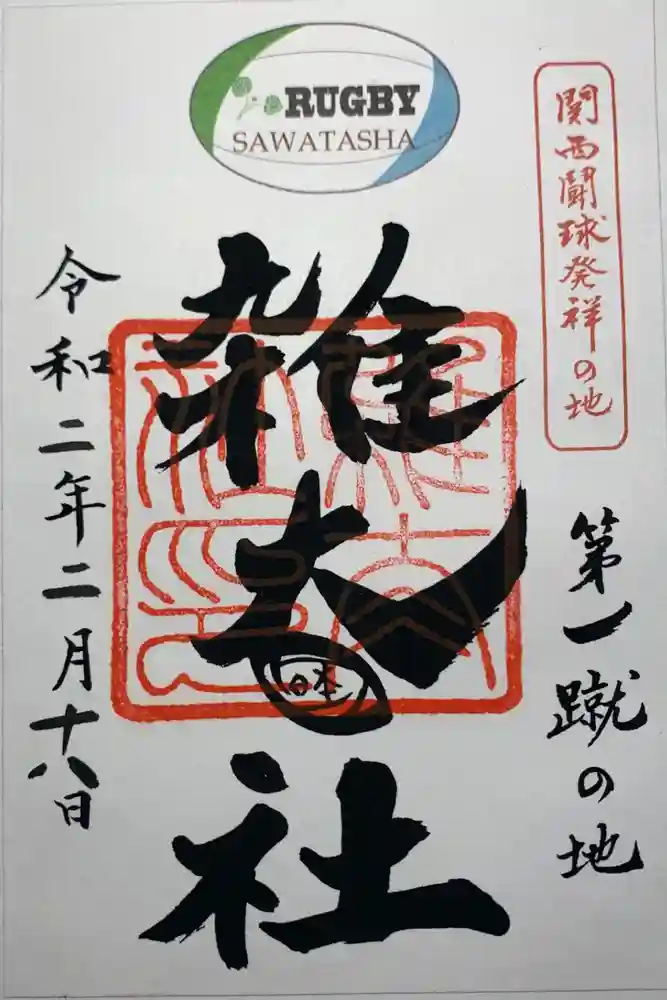 RUGBY
SAWATASHA
関西闘球発祥の地
第一蹴の地
雑太社
日本
令和二年二月十八日